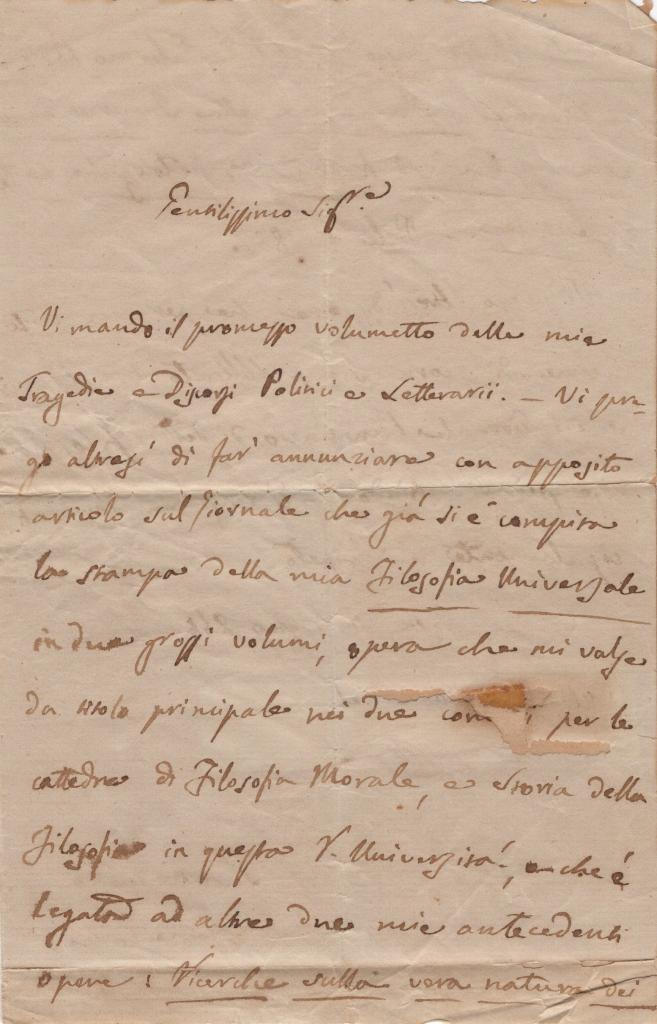 Gentilissimo Sigre
Vi mando il promesso volumetto delle mie
Tragedie e Discorsi Politici e Letterarii. – Vi pre-
go altresì di far annunziare con apposito
articolo sul Giornale che già si è compita
la stampa della mia Filosofia Universale
in due grossi volumi, opera che mi valse
da titolo principale nei due con i per le
cattedre di Filosofia Morale, e Storia della
Filosofia in questa R. Università, e che è
legata ad altre due mie antecedenti
opere: Ricerche sulla vera natura dei